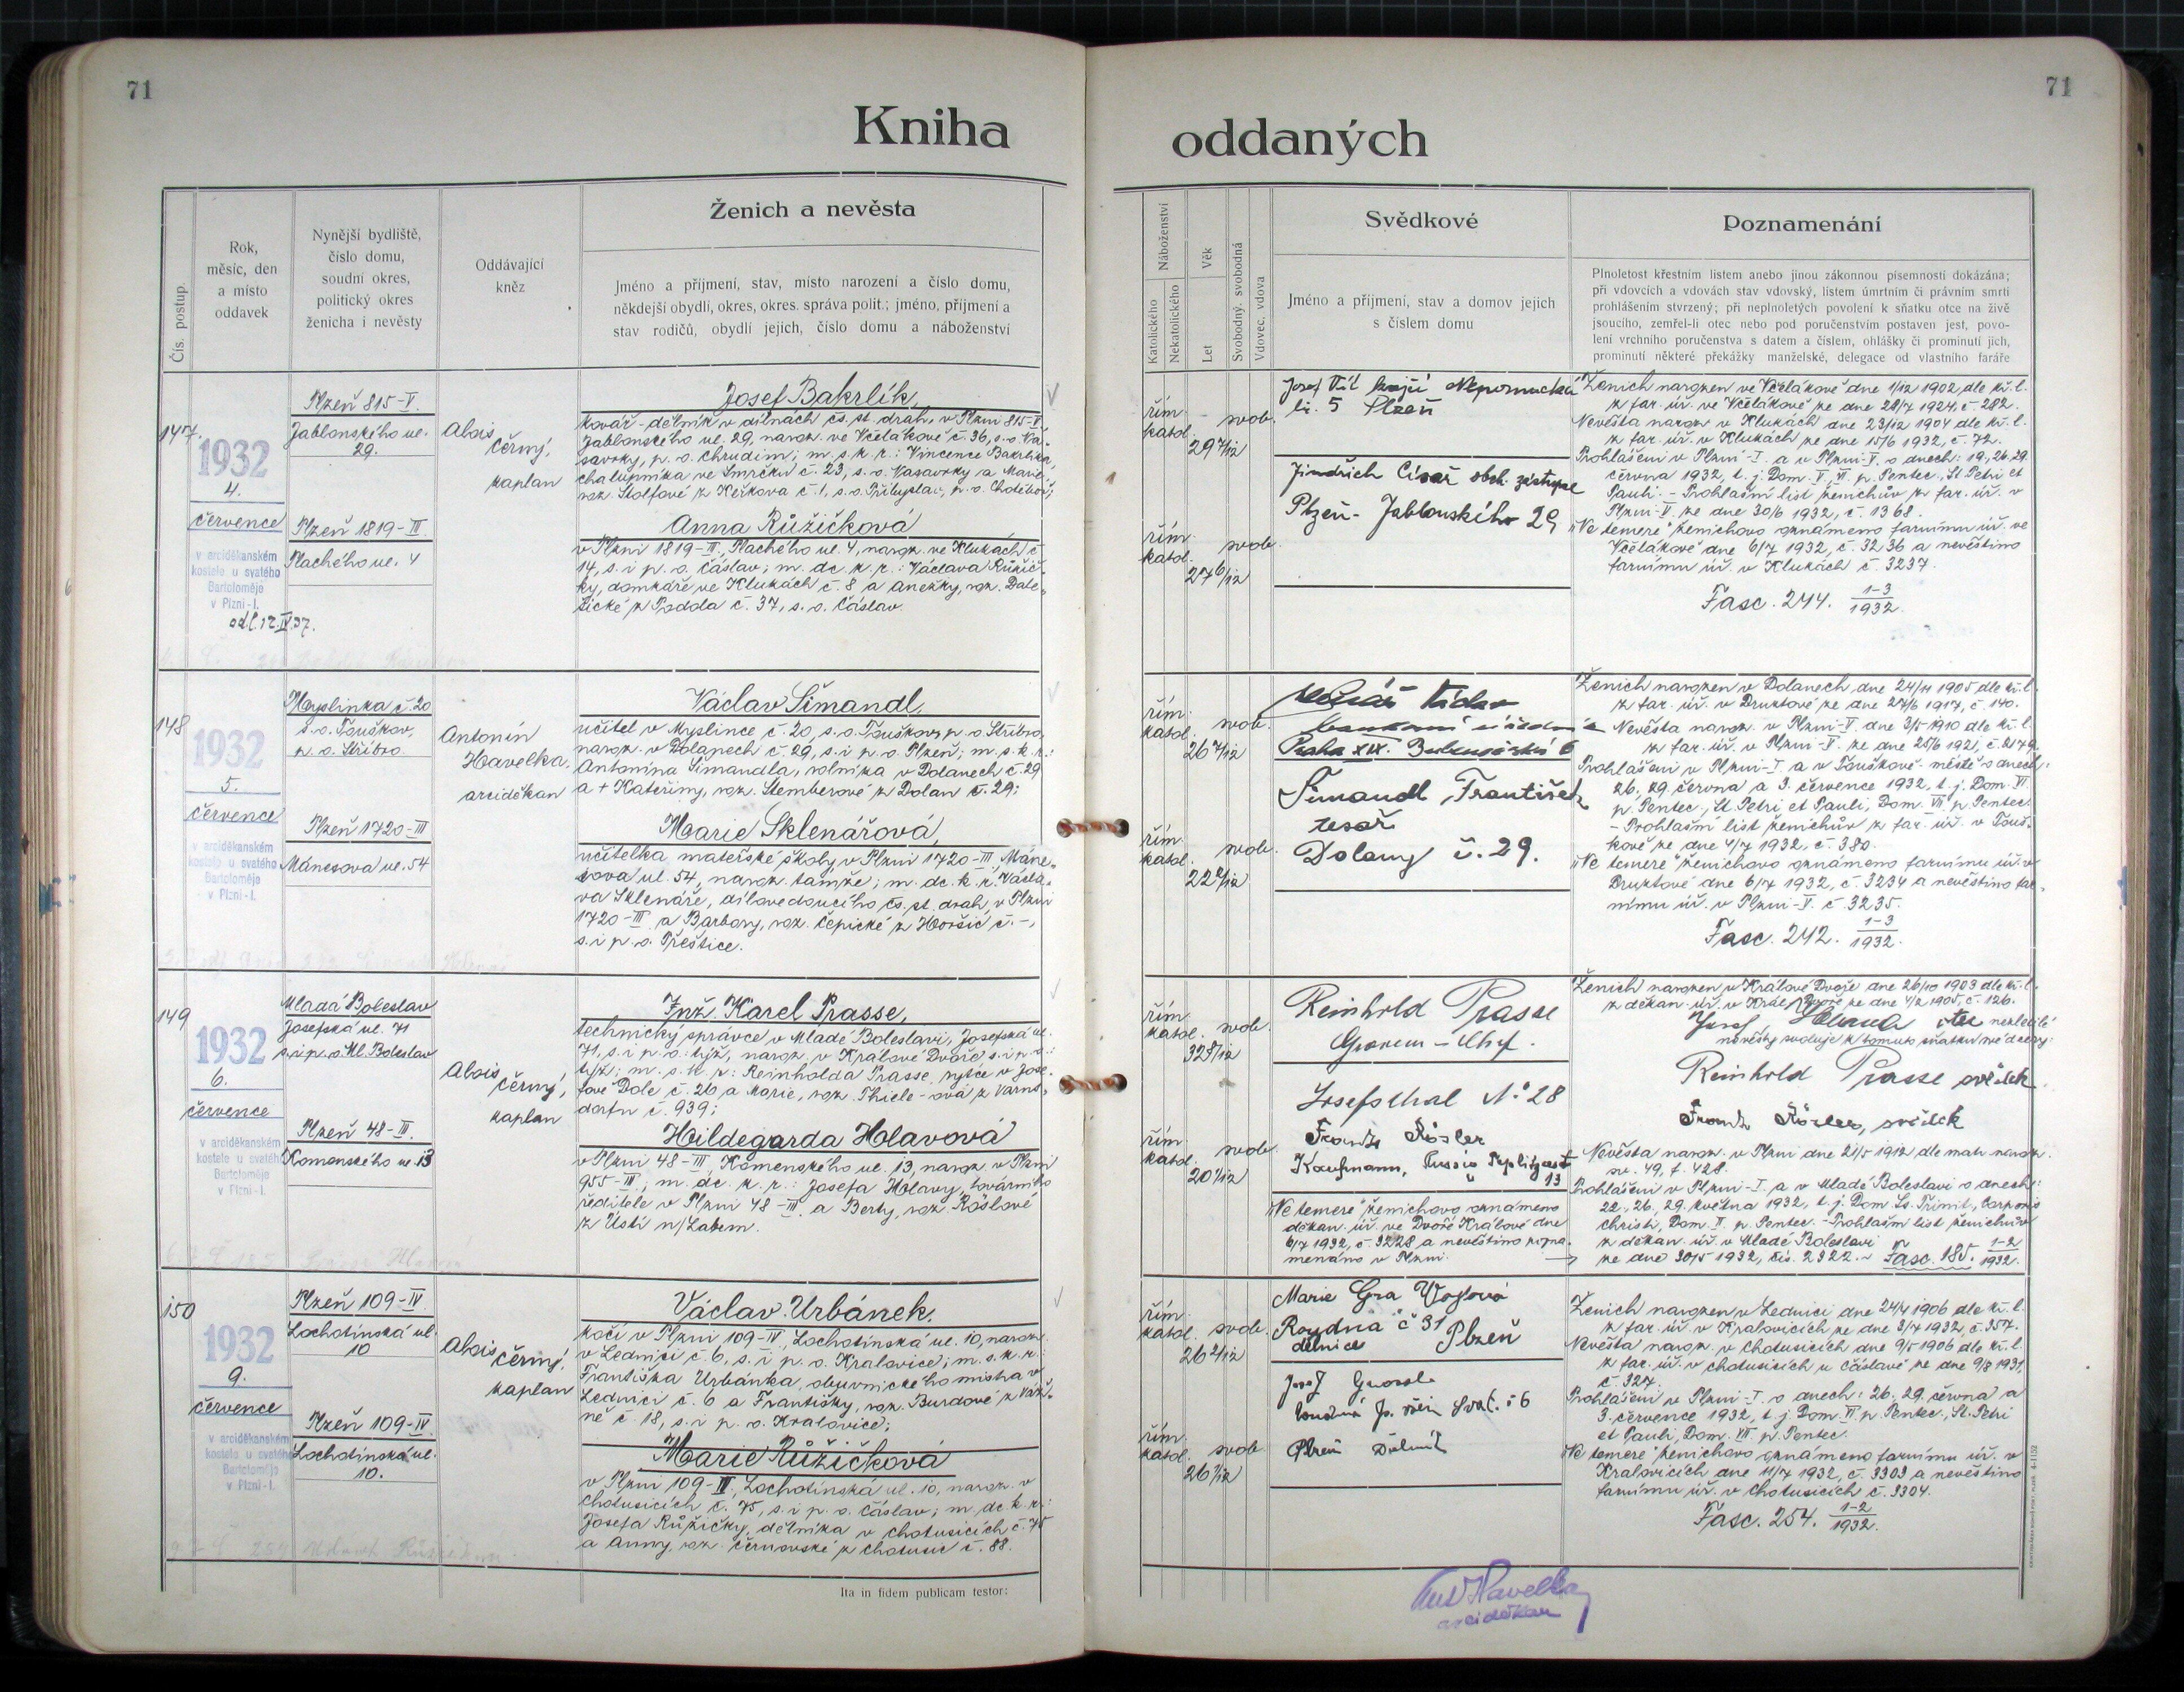 71
71
Kniha
oddaných
Čís. postup.
Rok,
měsíc, den
a místo
oddavek
Nynější bydliště,
číslo domu,
soudní okres,
politický okres
ženicha i nevěsty
Oddávající
kněz
Ženich a nevěsta
Jméno a příjmení, stav, místo narození a číslo domu,
někdejší obydlí, okres, okres. správa polit.; jméno, příjmení a
stav rodičů, obydlí jejich, číslo domu a náboženství
Náboženství
Katolického
Nekatolického
Věk
Let
Svobodný, svobodná
Vdovec, vdova
Svědkové
Jméno a příjmení, stav a domov jejich
s číslem domu
Poznamenání
Plnoletost křestním listem anebo jinou zákonnou písemností dokázána;
při vdovcích a vdovách stav vdovský, listem úmrtním či právním smrti
prohlášením stvrzený; při neplnoletých povolení k sňatku otce na živě
jsoucího, zemřel-li otec nebo pod poručenstvím postaven jest, povo-
lení vrchního poručenstva s datem a číslem, ohlášky či prominutí jich,
prominutí některé překážky manželské, delegace od vlastního faráře
147.
1932
4.
července
v arciděkanském
kostele u svatého
Bartoloměje
v Plzni-I.
odl. 12.IV.37.
Plzeň 815-V.
Jablonského ul.
29.
Plzeň 1819-III
Plachého ul. 4
Alois
Černý,
kaplan
Josef Bakrlík,
kovář-dělník v dílnách čs. st. drah, v Plzni 815-V,
Jablonského ul. 29, naroz. ve Včelákově č. 36, s. o. Na-
savrky, p. o. Chrudim; m. s. k. r.: Vincence Bakrlíka,
chalupníka ve Smrčku č. 23, s. o. Nasavrky a Marie,
roz. Štolfové z Keřkova č. 1, s. o. Přibyslav, p. o. Chotěboř;
Anna Růžičková
v Plzni 1819-III, Plachého ul. 4, naroz. ve Klukách č.
14, s. i p. o. Čáslav; m. dc. k. r.: Václava Růžič-
ky, domkáře ve Klukách č. 8 a Anežky, roz.
z Podda č. 37, s. o. Čáslav.
řím.
katol.
svob.
29 7/12
řím.
katol.
svob.
27 6/12
Josef Nepomucká
5 Plzeň
Jindřich Císař obch. zástupce
Plzeň - Jablonského 29
Ženich narozen ve Včelákově dne 1/12 1902, dle kř. l.
z far. úř. ve Včelákově ze dne 28/7 1924, č. 282.
Nevěsta naroz. v Klukách dne 23/12 1904 dle kř. l.
z far. úř. v Klukách ze dne 15/6 1932, č. 72.
Prohlášeni v Plzni-I. a v Plzni-V. o dnech: 19., 26., 29.
června 1932, t. j. Dom. V., VI. p. Pentec., St Petri et
Pauli. - Prohlašní list ženichův z far. úř. v
Plzni-V. ze dne 30/6 1932, č. 1368.
"Ne temere" ženichovo oznámeno farnímu úř. ve
Včelákově dne 6/7 1932, č. 3236 a nevěstino
farnímu úř. v Klukách č. 3237.
Fasc. 244. 1-3/1932.
148
1932
5.
července
v arciděkanském
kostele u svatého
Bartoloměje
v Plzni-I.
Myslinka č. 20
s. o. Touškov,
p. o. Stříbro.
Plzeň 1720-III
Mánesova ul. 54
Antonín
Havelka,
arciděkan
Václav Šimandl,
učitel v Myslince č. 20, s. o. Touškov, p. o. Stříbro,
naroz. v Dolanech č. 29, s. i p. o. Plzeň; m. s. k. r.:
Antonína Šimandla, rolníka v Dolanech č. 29
a + Kateřiny, roz. Štemberové z Dolan č. 29;
Marie Sklenářová,
učitelka mateřské školy v Plzni 1720-III, Máne-
sova ul. 54, naroz. tamže; m. dc. k. r. Václa-
va Sklenáře, dílovedoucího čs. st. drah, v Plzni
1720-III a Barbory, roz. Čepické z Horšic č. -,
s. i p. o. Přeštice.
řím.
katol.
svob.
26 7/12
řím.
katol.
svob.
22 2/12
Praha XIX. 6
Šimandl František
tesař
Dolany č. 29.
Ženich narozen v Dolanech dne 24/11 1905 dle kř. l.
z far. úř. v Druztové ze dne 27/6 1917, č. 140.
Nevěsta naroz. v Plzni-V. dne 3/5 1910 dle kř. l.
z far. úř. v Plzni-V. ze dne 25/6 1921, č. 2179.
Prohlášeni v Plzni-I. a v Touškově-městě o dnech:
26., 29. června a 3. července 1932, t. j. Dom. VI.
p. Pentec., St. Petri et Pauli, Dom. VII. p. Pentec.
- Prohlašní list ženichův z far. úř. v Touš-
kově ze dne 4/7 1932, č. 380.
"Ne temere" ženichovo oznámeno farnímu úř. v
Druztové dne 6/7 1932, č. 3234 a nevěstino far-
nímu úř. v Plzni-V. č. 3235.
Fasc. 242. 1-3/1932.
149
1932
6.
července
v arciděkanském
kostele u svatého
Bartoloměje
v Plzni-I.
Mladá Boleslav
Josefská ul. 71
s. i p. o. Ml. Boleslav
Plzeň 48-III.
Komenského ul. 13
Alois
Černý,
kaplan
Inž. Karel Prasse,
technický správce v Mladé Boleslavi, Josefská ul.
71, s. i p. o. týž, naroz. v Králové Dvoře s. i p. o.:
týž; m. s. k. r.: Reinholda Prasse, rytce v Jose-
fově Dole č. 26 a Marie, roz. Thiele-ová z Varns-
dorfu č. 939;
Hildegarda Hlavová
v Plzni 48-III, Komenského ul. 13, naroz. v Plzni
955-III; m. dc. k. r.: Josefa Hlavy, továrního
ředitele v Plzni 48-III a Berty, roz. Röslové
z Ústí n/Labem.
řím.
katol.
svob.
32 8/12
řím.
katol.
svob.
20 1/12
Reinhold Prasse
Graveur-Chef.
Josefsthal No 28
Frantz Rösler
Kaufmann, Aussig Teplitzerst
13
"Ne temere" ženichovo oznámeno
děkan. úř. ve Dvoře Králové dne
6/7 1932, č. 3228 a nevěstino pozna-
menáno v Plzni.
Ženich narozen v Králové Dvoře dne 26/10 1903 dle kř. l.
z děkan. úř. v Král. Dvoře ze dne 4/2 1905, č. 126.
Josef Hlava otec nezletilé
nevěsty svoluje k tomuto sňatku své dcery:
Reinhold Prasse svědek
Frantz Rösler, svědek
Nevěsta naroz. v Plzni dne 21/5 1912 dle matr. naroz.
sv. 49, f. 428.
Prohlášeni v Plzni-I. a v Mladé Boleslavi o dnech:
22., 26., 29. května 1932, t. j. Dom. Ss. Trinit., Corporis
Christi, Dom. II. p. Pentec. - Prohlašní list ženichův
z děkan. úř. v Mladé Boleslavi
ze dne 30/5 1932, čís. 2322. - Fasc. 185. 1-2/1932.
150
1932
9.
července
v arciděkanském
kostele u svatého
Bartoloměje
v Plzni-I.
Plzeň 109-IV.
Lochotínská ul.
10
Plzeň 109-IV
Lochotínská ul.
10.
Alois
Černý,
kaplan
Václav Urbánek,
kočí v Plzni 109-IV, Lochotínská ul. 10, naroz.
v Lednici č. 6, s. i p. o. Kralovice; m. s. k. r.:
Františka Urbánka, obuvnického mistra v
Lednici č. 6 a Františky, roz. Burdové z
č. 18, s. i p. o. Kralovice;
Marie Růžičková
v Plzni 109-IV, Lochotínská ul. 10, naroz. v
Chotusicích č. 75, s. i p. o. Čáslav; m. dc. k. r.:
Josefa Růžičky, dělníka v Chotusicích č. 75
a Anny, roz. Černovské z Chotusic č. 88.
řím.
katol.
svob.
26 2/12
řím.
katol.
svob.
26 2/12
Marie
č 31
dělnice Plzeň
Josef
Plzeň Dělník
Ženich narozen v Lednici dne 24/4 1906 dle kř. l.
z far. úř. v Kralovicích ze dne 3/7 1932, č. 357.
Nevěsta naroz. v Chotusicích dne 9/5 1906 dle kř. l.
z far. úř. v Chotusicích u Čáslavě ze dne 9/8 1931,
č. 327.
Prohlášeni v Plzni-I. o dnech: 26., 29. června a
3. července 1932, t. j. Dom. VI. p. Pentec., St. Petri
et Pauli, Dom. VII. p. Pentec.
"Ne temere" ženichovo oznámeno farnímu úř. v
Kralovicích dne 11/7 1932, č. 3303 a nevěstino
farnímu úř. v Chotusicích č. 3304.
Fasc. 254. 1-2/1932.
Ita in fidem publicam testor:
Ant Havelka
arciděkan